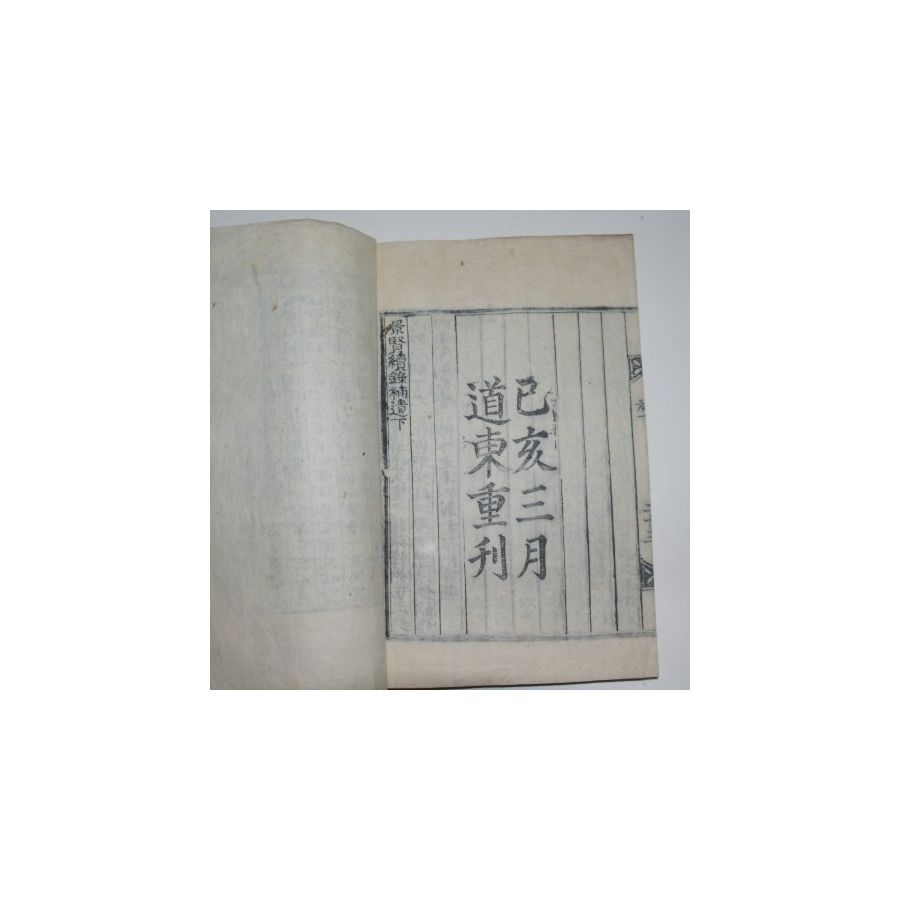 己亥三月
道東重刋
景賢續錄補遺下